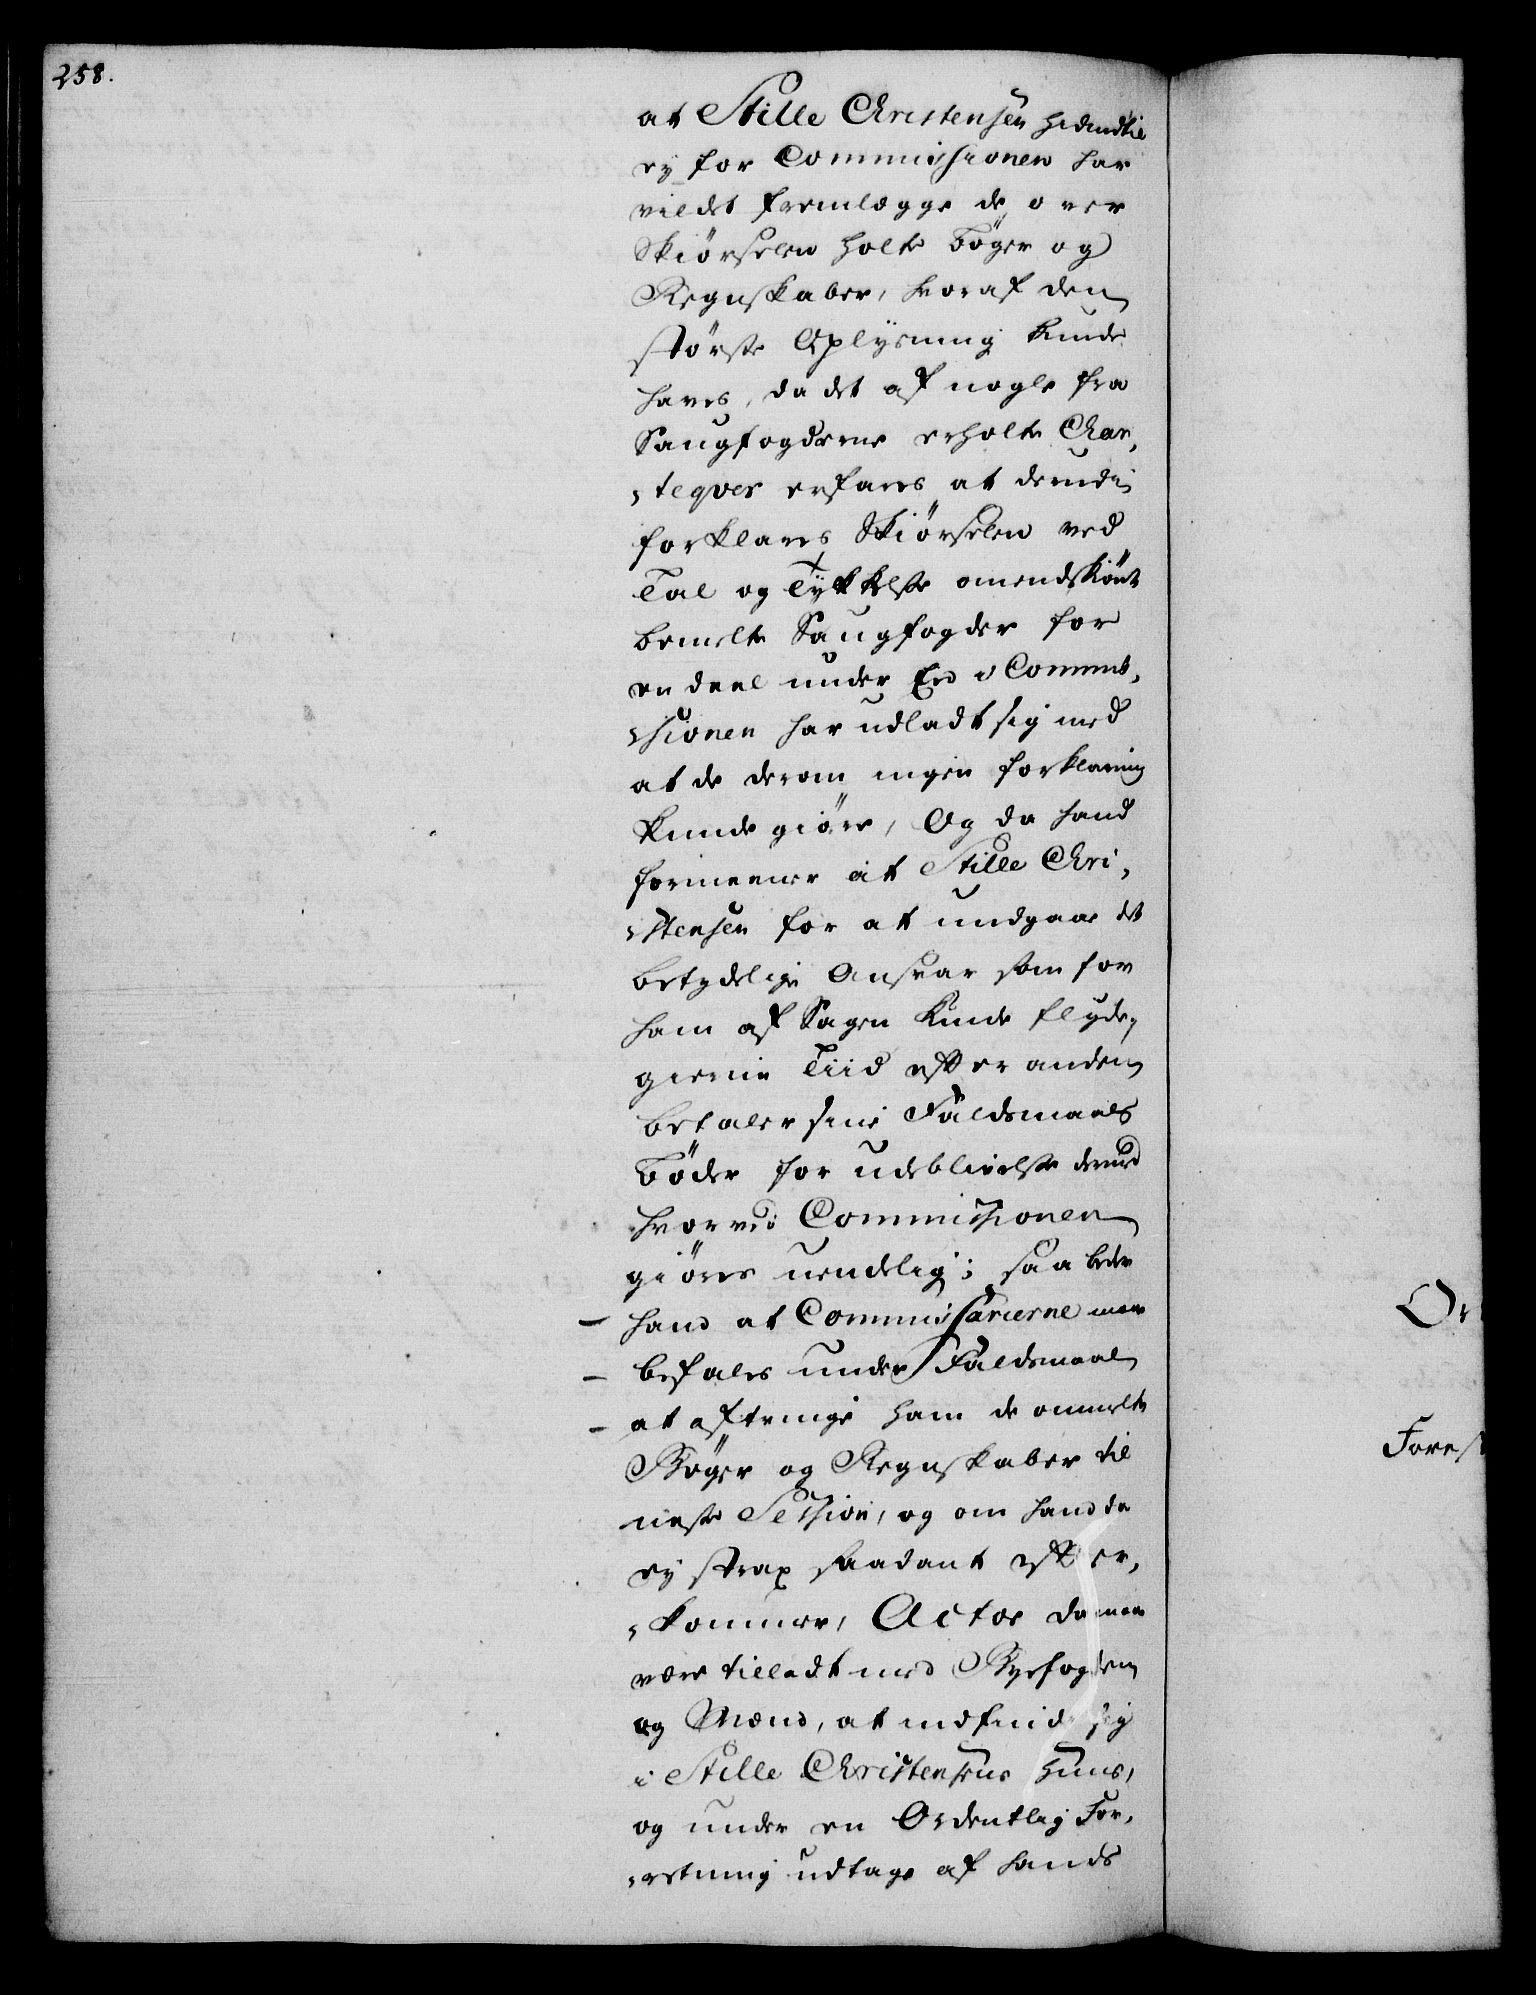 258.
at Stille Christensen hidindtil
ey for Commissionen har
vildet fremlægge de over
Skiørselen holte bøger og
Regnskaber, hvoraf den
største Oplysning kunde
haves, da det af nogle fra
Saugfogderne erholte Char,
„teqver erfares at derudi
forklares Skiørselen ved
Tal og Tykkelse omendskiønt
bemelte Saugfogder for
en deel under Eed i Commis,
„sionen har udladt sig med
at de derom ingen forklaring
kunde giøre, Og da hand
formeener at Stille Chri,
„stensen for at undgaae det
betydelige Ansvar som for
ham af Sagen kunde flyde,
gierne Tiid efter anden
betaler sine Faldsmaals
bøder for udeblivelse derved
hvorved Commissionen
giøres uendelig; saa beder
hand at Commissarierne maae
befales under Faldsmaal
at aftvinge ham de ommelte
Bøger og Regnskaber til
neste Session, og om hand da
ey strax saadant efter,
„kommer, Actor da maae
være tilladt med Byefogden
og Mænd, at indfinde sig
i Stille Christensens Huus,
og under en Ordentlig For,
„retning udtage af hands
Or
Fores